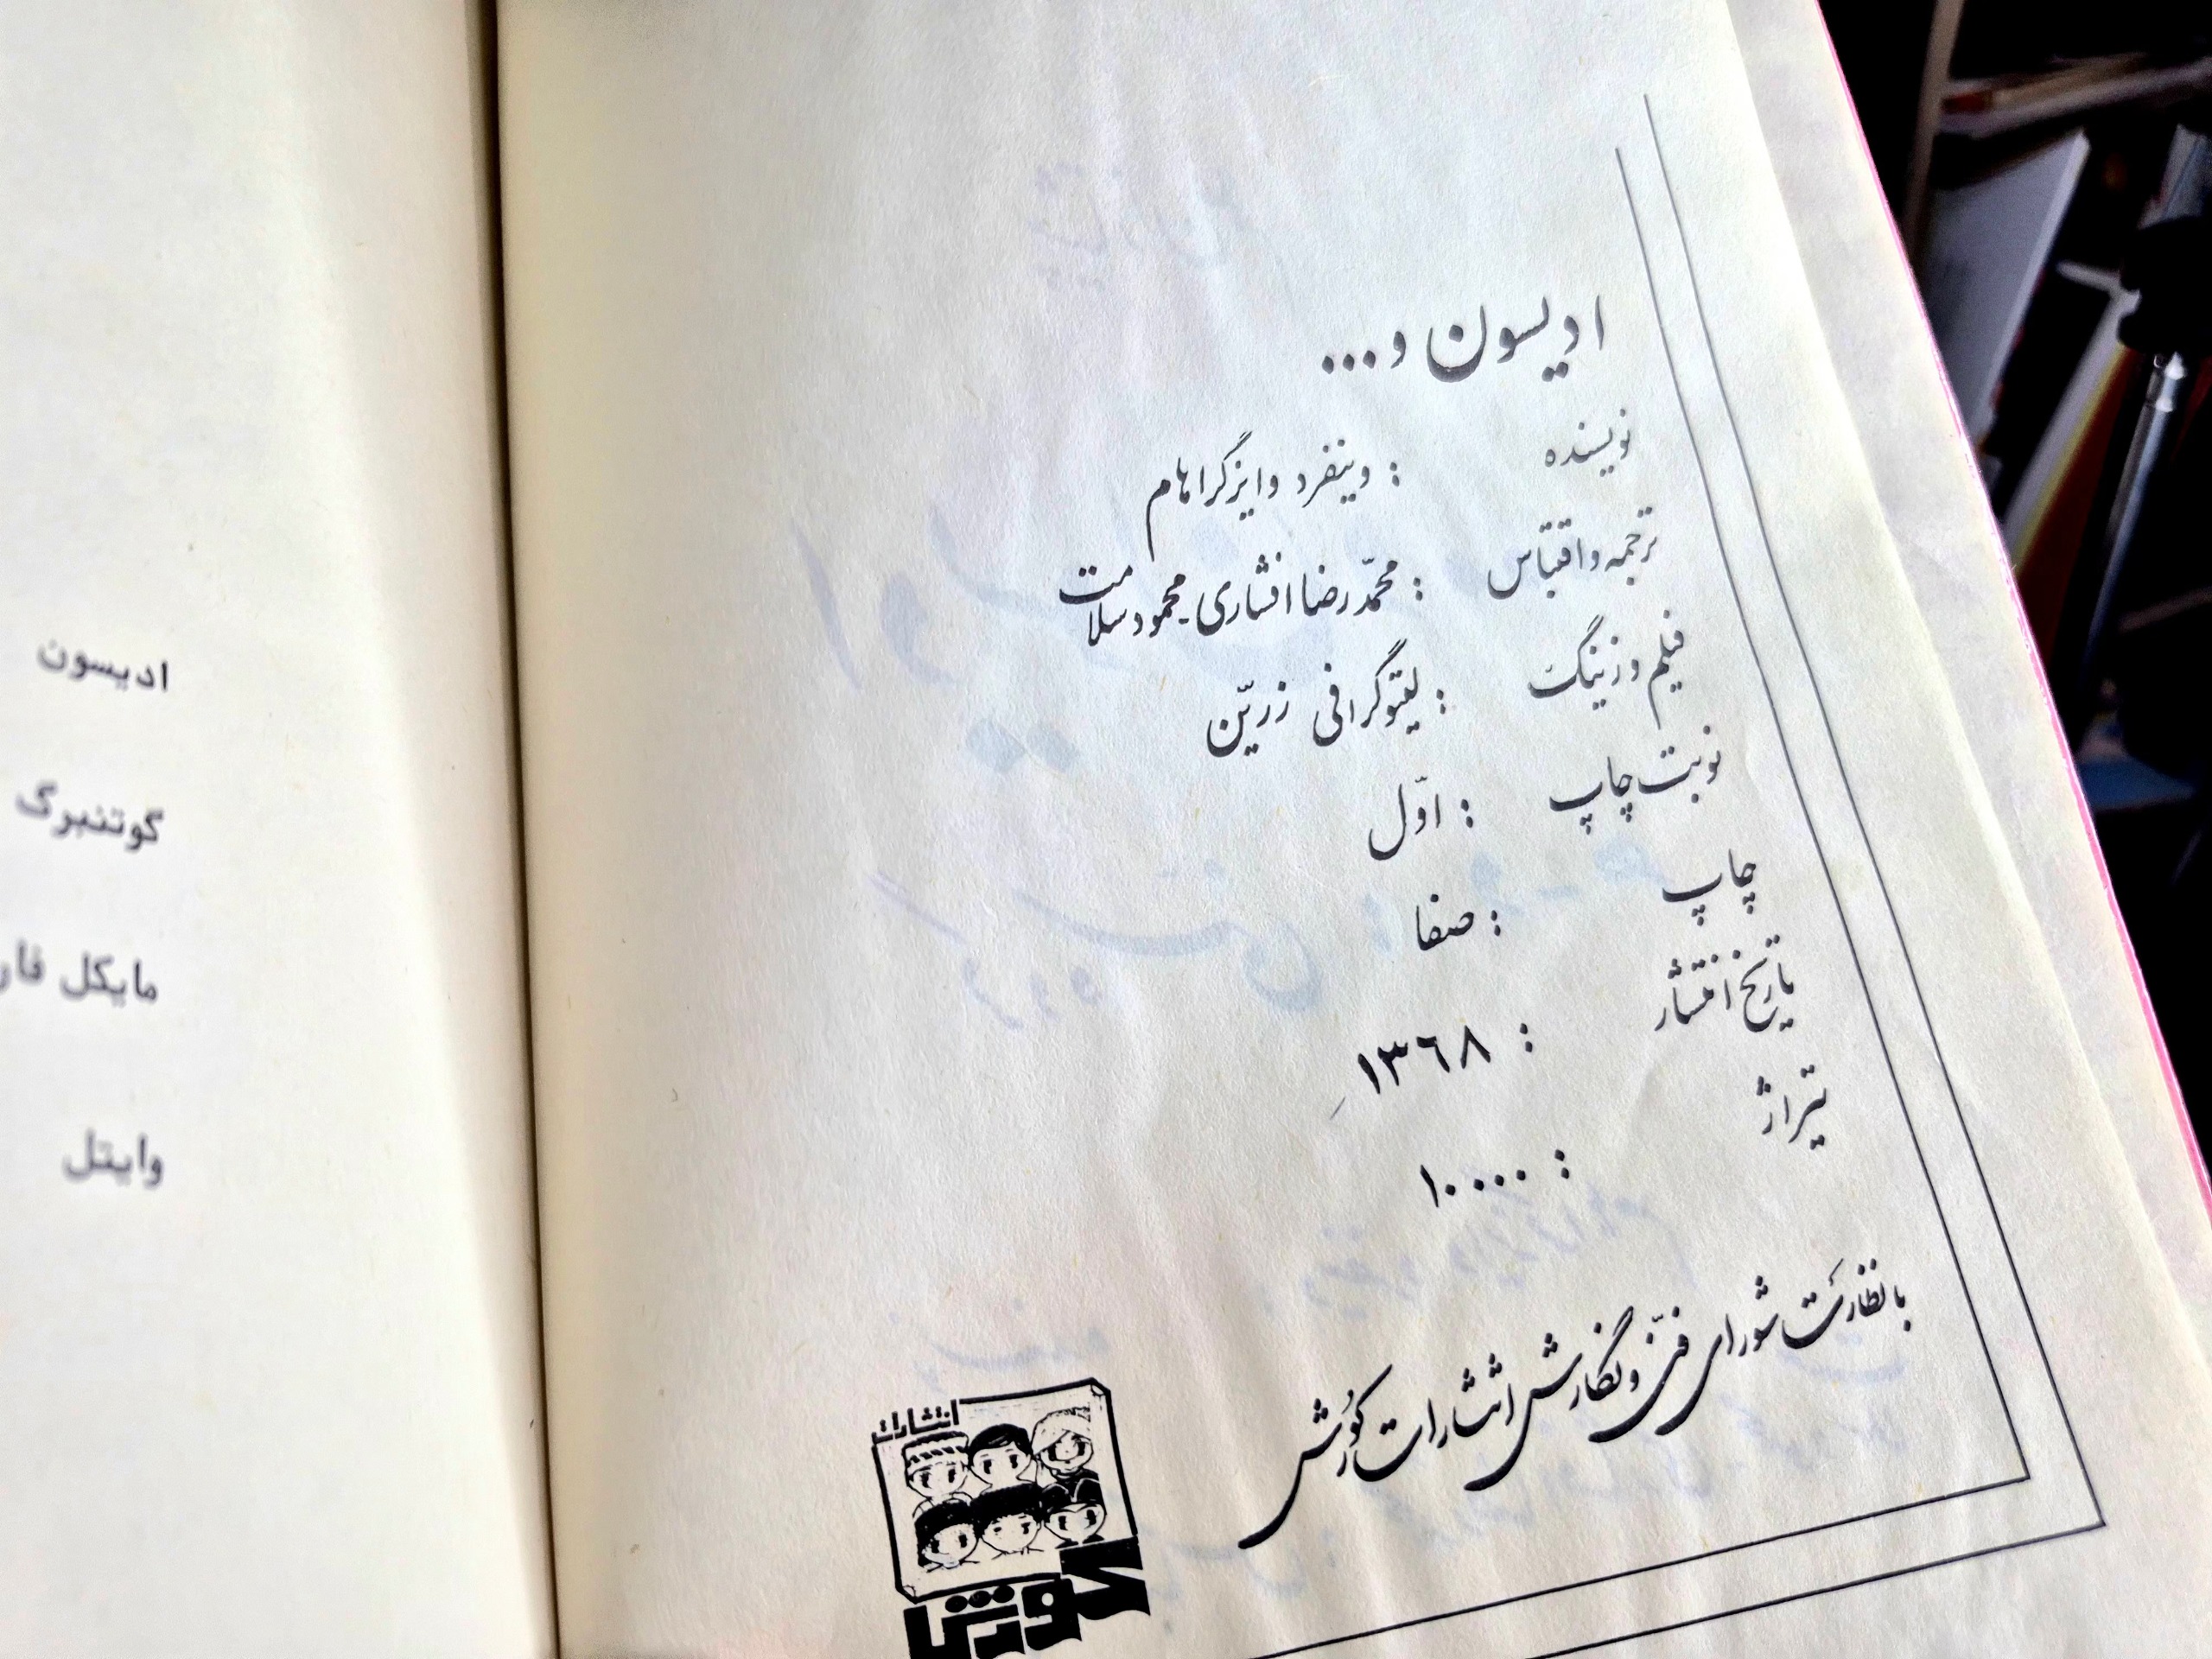 ادیسون و...
نویسنده : وینفرد وایزگراهام
ترجمه و اقتباس : محمّدرضا افشاری - محمود سلامت
فیلم و زینگ : لیتوگرافی زرّین
نوبت چاپ : اوّل
چاپ : صفا
تاریخ انتشار : ۱۳۶۸
تیراژ : ۱۰۰۰۰
با نظارت شورای فنّی و نگارش انتشارات کورُش
انتشارات
کورش
ادیسون
گوتنبرگ
مایکل فار
وایتل